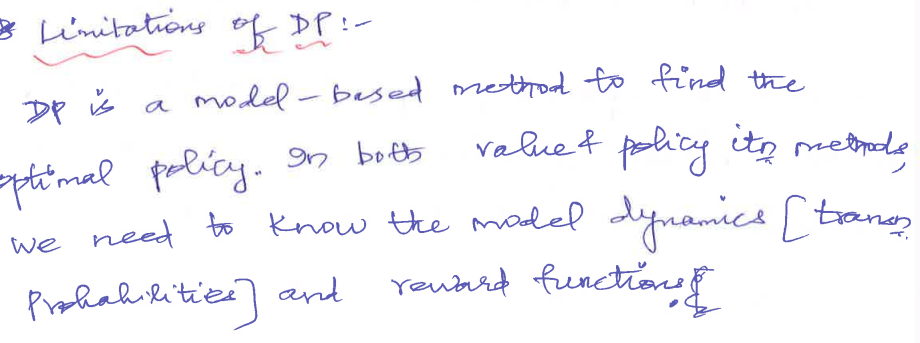 * Limitations of DP :-
DP is a model-based method to find the
optimal policy. In both value & policy itn methods,
we need to know the model dynamics [transn.
Probabilities] and reward functions.